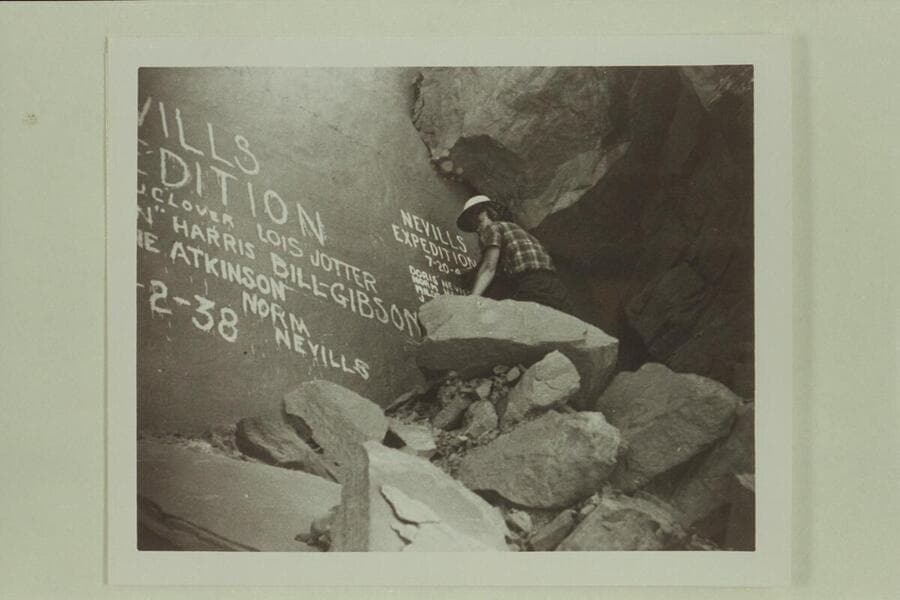 VILLS
EDITION
CLOVER LOIS JOTTER
N" HARRIS BILL-GIBSON
NE ATKINSON NORM
NEVILLS
-2-38
NEVILLS
EXPEDITION
7-20-
DORIS NEVIL
NORM